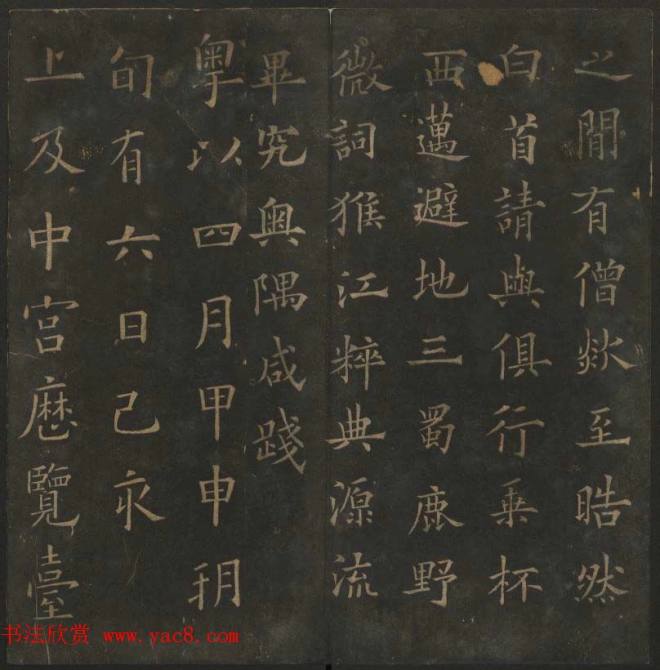 之閒有僧欻至晧然
白首請與俱行乗杯
西邁避地三蜀鹿野
微詞猴江粹典源流
畢究奥隅咸踐
粤以四月甲申朔
旬有六日己亥
上及中宮歴覽臺
书法欣赏 www.yac8.com